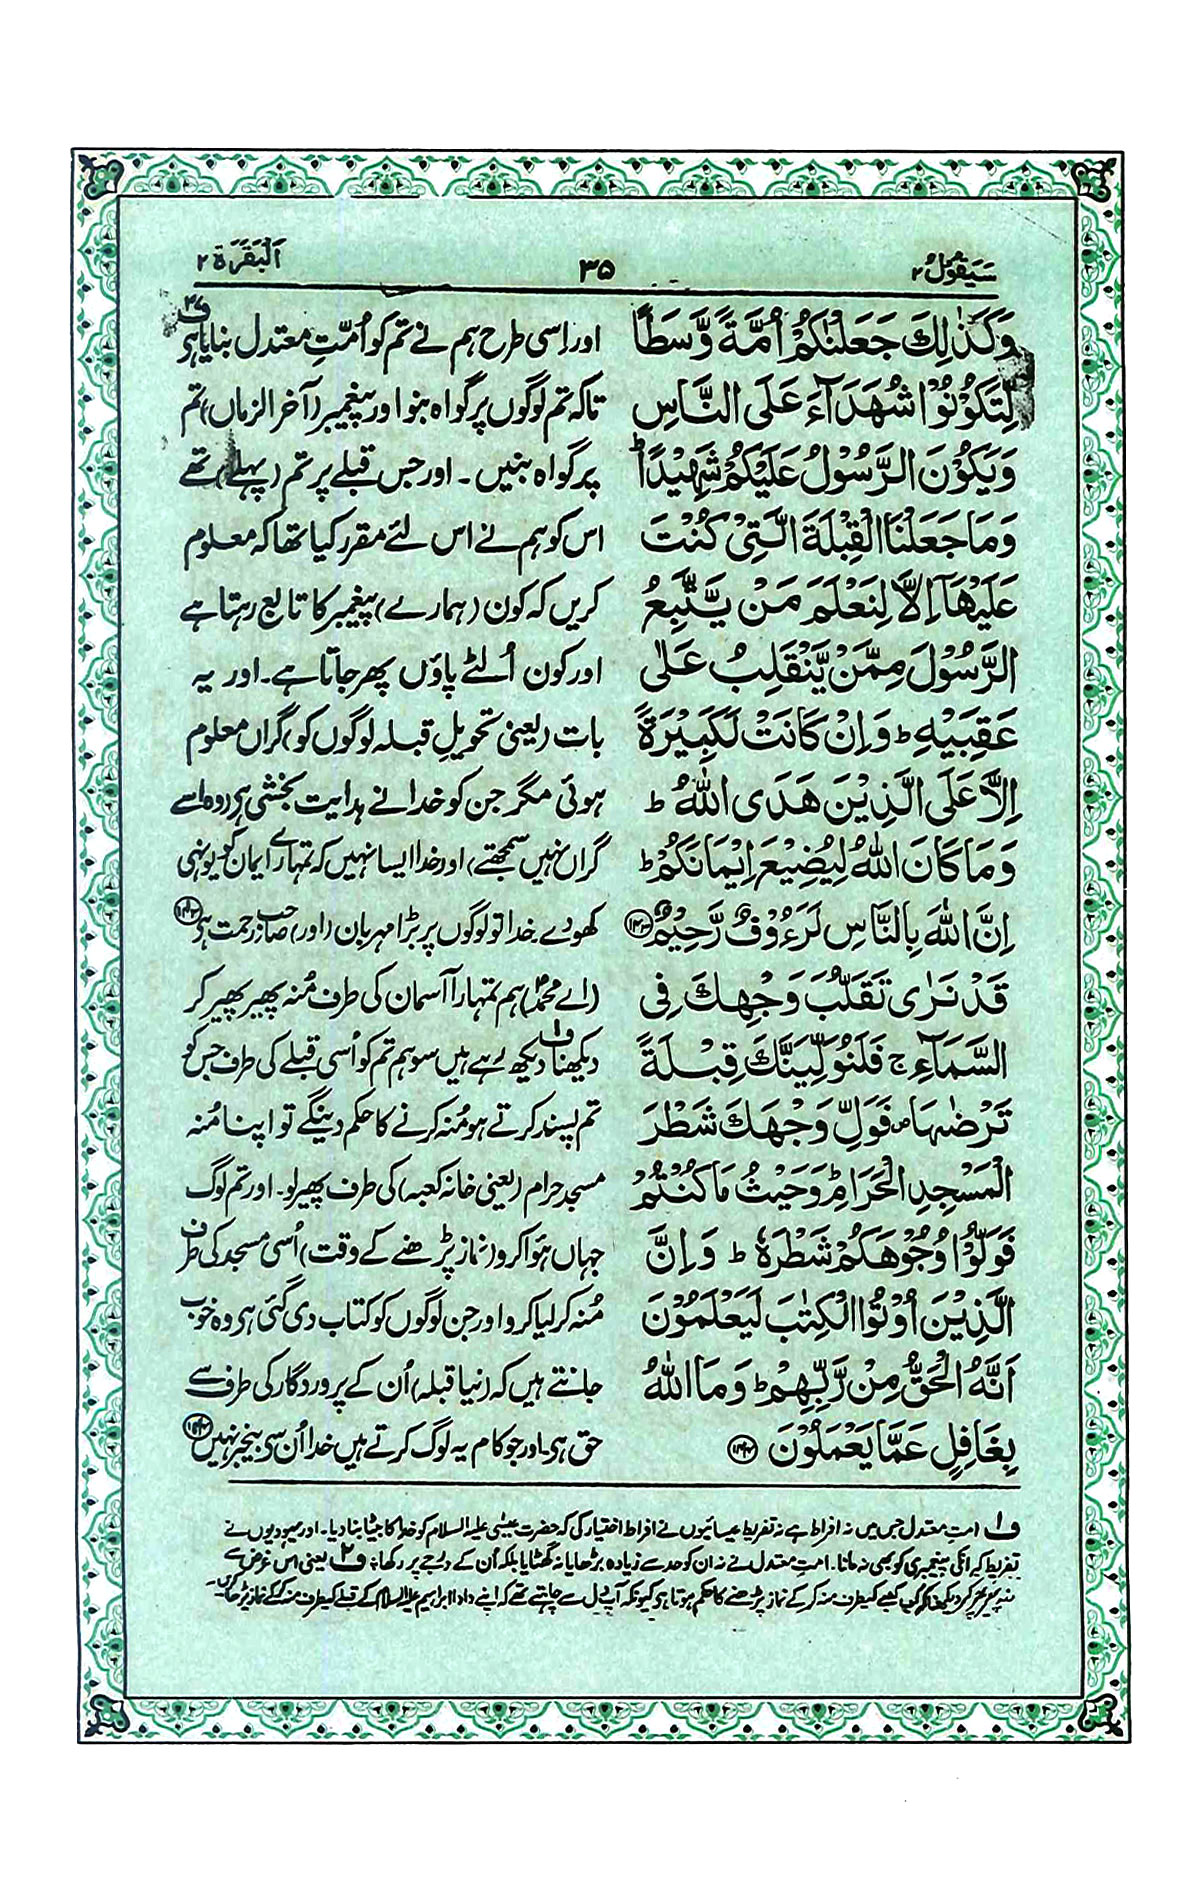 سَيَقُوْلُ ٢
٣٥
اَلْبَقَرَة ٢
وَكَذٰلِكَ جَعَلْنٰكُمْ اُمَّةً وَّسَطًا
لِّتَكُوْنُوْا شُهَدَآءَ عَلَى النَّاسِ
وَيَكُوْنَ الرَّسُوْلُ عَلَيْكُمْ شَهِيْدًا ؕ
وَمَا جَعَلْنَا الْقِبْلَةَ الَّتِيْ كُنْتَ
عَلَيْهَآ اِلَّا لِنَعْلَمَ مَنْ يَّتَّبِعُ
الرَّسُوْلَ مِمَّنْ يَّنْقَلِبُ عَلٰى
عَقِبَيْهِ ؕ وَاِنْ كَانَتْ لَكَبِيْرَةً
اِلَّا عَلَى الَّذِيْنَ هَدَى اللّٰهُ ؕ
وَمَا كَانَ اللّٰهُ لِيُضِيْعَ اِيْمَانَكُمْ ؕ
اِنَّ اللّٰهَ بِالنَّاسِ لَرَءُوْفٌ رَّحِيْمٌ ﴿١٤٣﴾
قَدْ نَرٰى تَقَلُّبَ وَجْهِكَ فِي
السَّمَآءِ ج فَلَنُوَلِّيَنَّكَ قِبْلَةً
تَرْضٰىهَا ص فَوَلِّ وَجْهَكَ شَطْرَ
الْمَسْجِدِ الْحَرَامِ ؕ وَحَيْثُ مَا كُنْتُمْ
فَوَلُّوْا وُجُوْهَكُمْ شَطْرَهٗ ؕ وَاِنَّ
الَّذِيْنَ اُوْتُوا الْكِتٰبَ لَيَعْلَمُوْنَ
اَنَّهُ الْحَقُّ مِنْ رَّبِّهِمْ ؕ وَمَا اللّٰهُ
بِغَافِلٍ عَمَّا يَعْمَلُوْنَ ﴿١٤٤﴾
اور اِسی طرح ہم نے تم کو اُمّتِ معتدل بنایا ہی
تاکہ تم لوگوں پر گواہ بنو اور پیغمبر (آخر الزماں) تم
پر گواہ بنیں ۔ اور جس قبلے پر تم (پہلے) تھے
اس کو ہم نے اس لئے مقرر کیا تھا کہ معلوم
کریں کہ کون (ہمارے) پیغمبر کا تابع رہتا ہے
اور کون اُلٹے پاؤں پھر جاتا ہے۔ اور یہ
بات (یعنی تحویلِ قبلہ لوگوں کو) گراں معلوم
ہوئی مگر جن کو خدا نے ہدایت بخشی ہی (وہ اسے
گراں نہیں سمجھتے) اور خدا ایسا نہیں کہ تمہارے ایمان کو یونہی
کھو دے خدا تو لوگوں پر بڑا مہربان (اور) صاحبِ رحمت ہی ﴿١٤٣﴾
(اے محمدؐ) ہم تمہارا آسمان کی طرف مُنہ پھیر پھیر کر
دیکھنا دیکھ رہے ہیں سو ہم تم کو اُسی قبلے کی طرف جس کو
تم پسند کرتے ہو مُنہ کرنے کا حکم دینگے تو اپنا مُنہ
مسجد حرام (یعنی خانہ کعبہ) کی طرف پھیر لو۔ اور تم لوگ
جہاں ہُوا کرو (نماز پڑھنے کے وقت) اُسی مسجد کی طرف
مُنہ کر لیا کرو اور جن لوگوں کو کتاب دی گئی ہی وہ خوب
جانتے ہیں کہ (نیا قبلہ) اُن کے پروردگار کی طرف سے
حق ہی۔ اور جو کام یہ لوگ کرتے ہیں خدا اُن سی بیخبر نہیں ﴿١٤٤﴾
ف۱ امت معتدل جس میں نہ افراط ہے نہ تفریط عیسائیوں نے افراط اختیار کی کہ حضرت عیسیٰ علیہ السلام کو خدا کا بیٹا بنا دیا۔ اور یہودیوں نے
تفریط کہ انکی پیغمبری کو بھی نہ مانا۔ امتِ معتدل نے نہ ان کو حد سے زیادہ بڑھایا نہ گھٹایا بلکہ اُن کے درجے پر رکھا ف۲ یعنی اس غرض سے
منہ پھیر پھیر کر دیکھنا کہ کب کعبے کیطرف منہ کر کے نماز پڑھنے کا حکم ہوتا ہی کیونکہ آپ دل سے چاہتے تھے کہ اپنے دادا ابراہیم علیہ السلام کے قبلے کیطرف منہ کر کے نماز پڑھا کریں۔